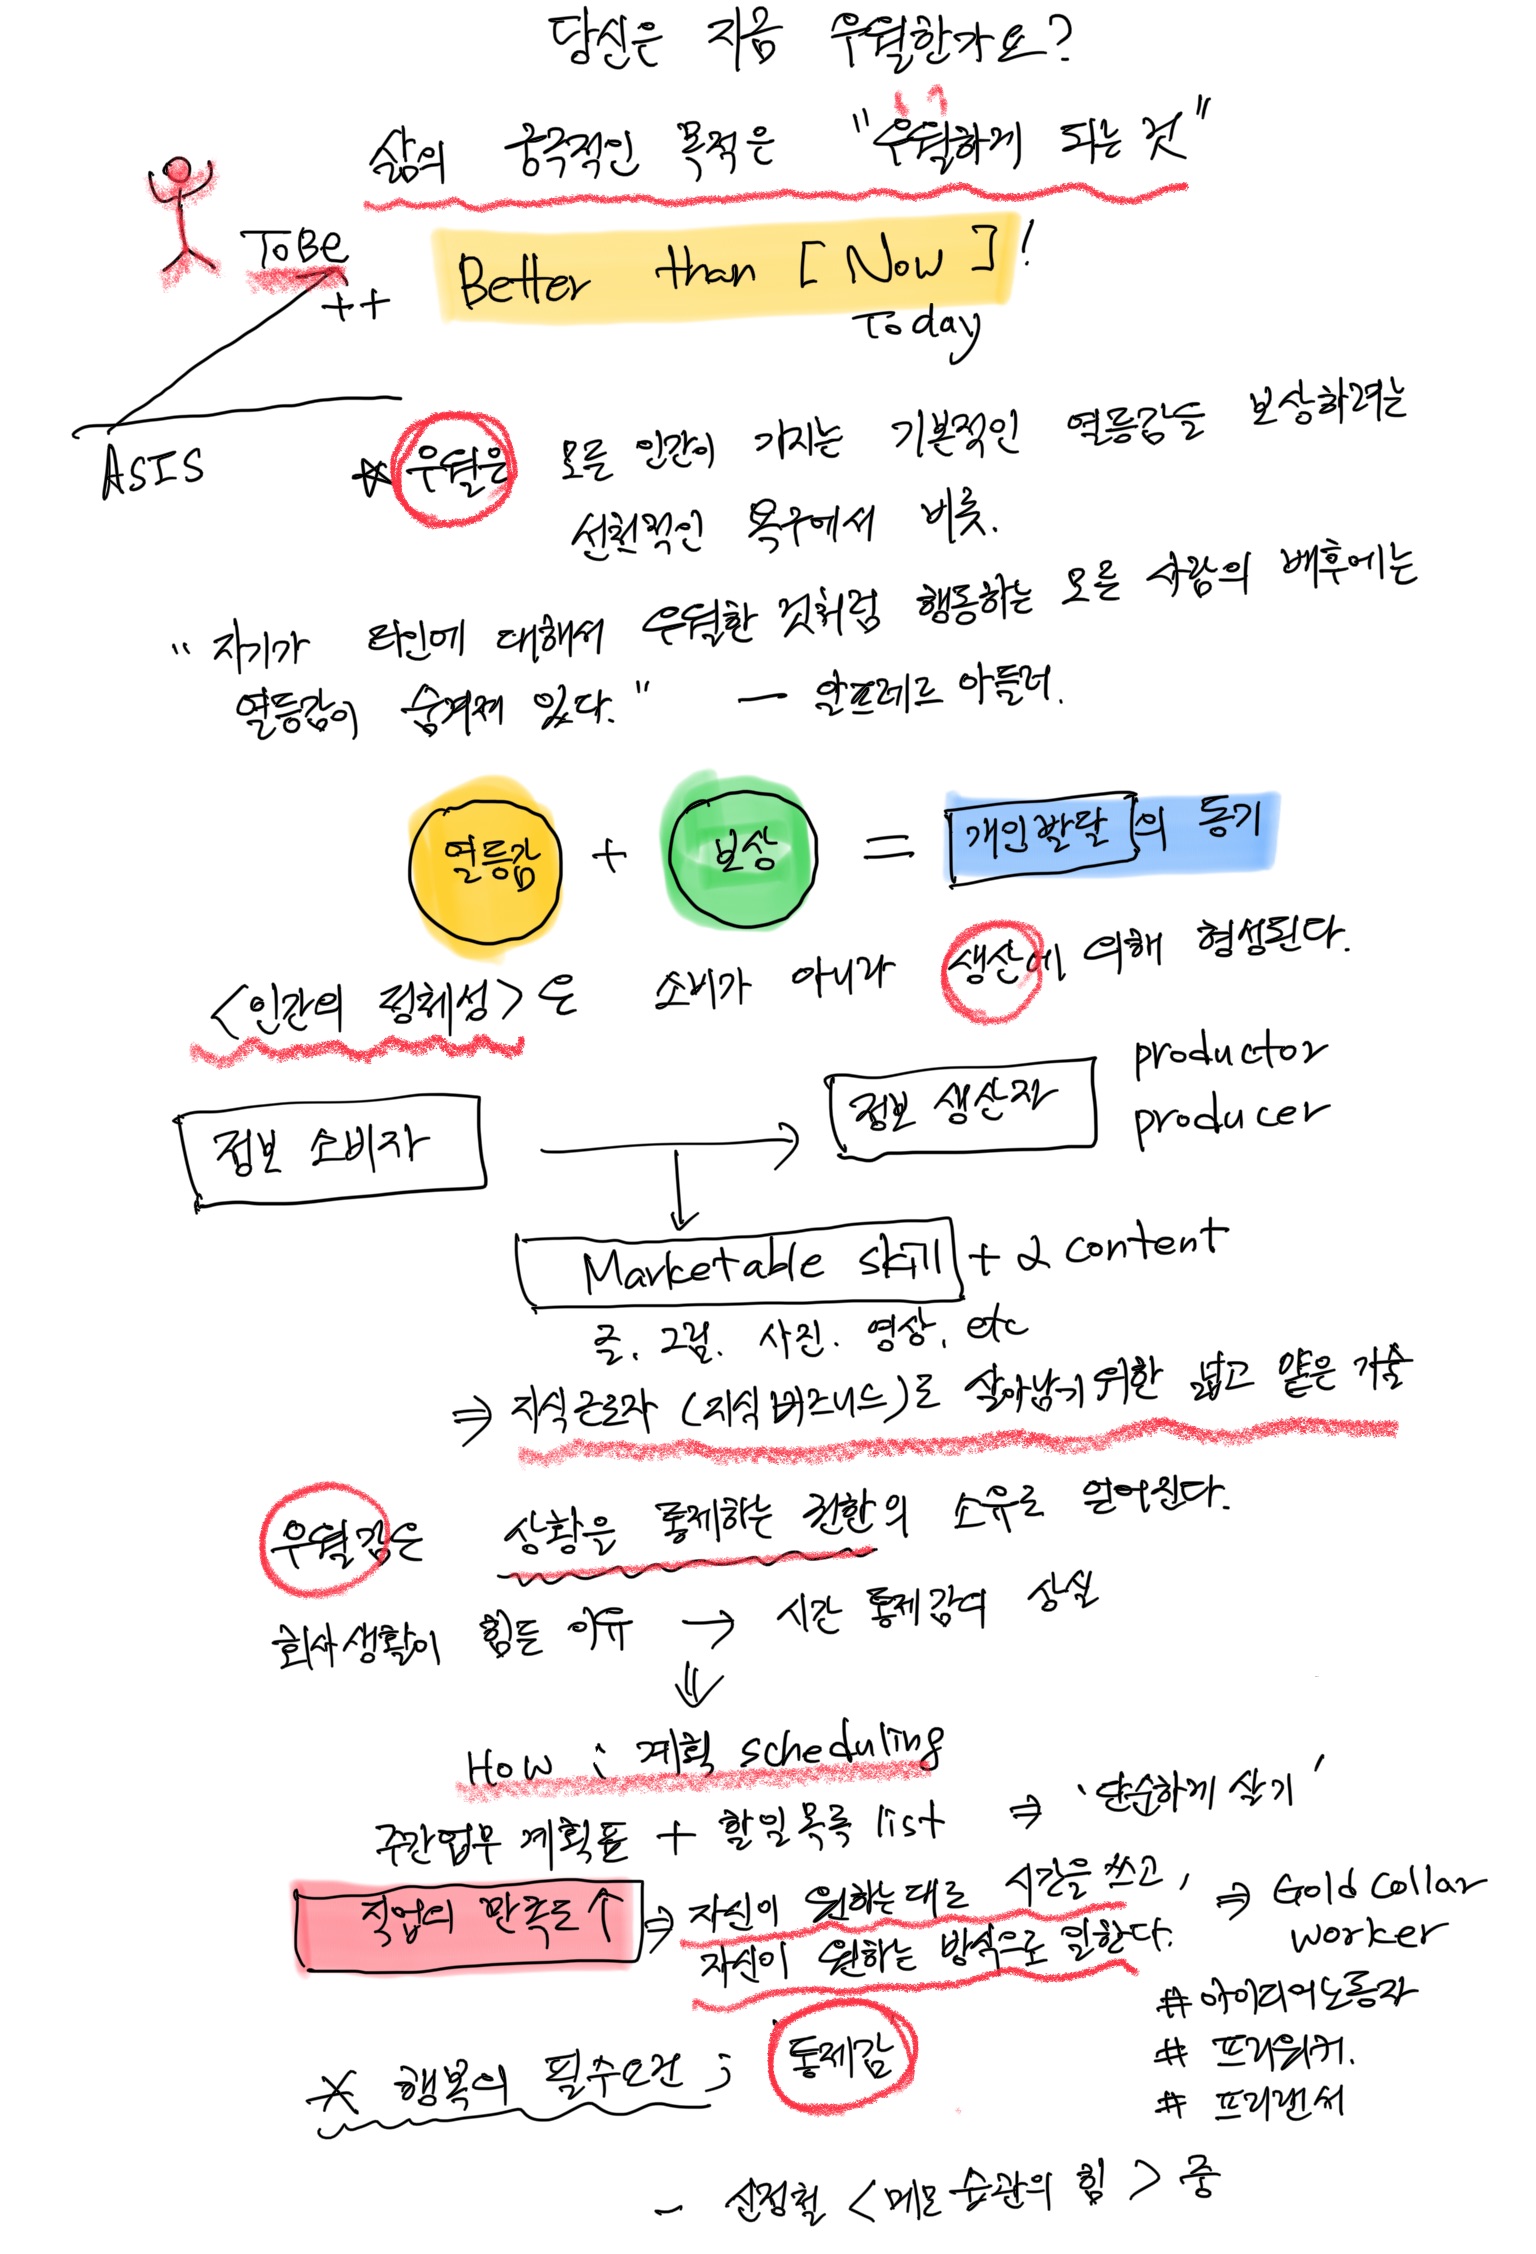 당신은 지금 우월한가요?
삶의 궁극적인 목적은 "우월하게 되는 것"
ToBe
++
Better than [Now]!
Today
ASIS
* 우월은 모든 인간이 가지는 기본적인 열등감을 보상하려는
선천적인 욕구에서 비롯.
"자기가 타인에 대해서 우월한 것처럼 행동하는 모든 사람의 배후에는
열등감이 숨겨져 있다." - 알프레드 아들러.
열등감 + 보상 = 개인발달의 동기
<인간의 정체성>은 소비가 아니라 생산에 의해 형성된다.
정보 소비자 → 정보 생산자
productor
producer
Marketable skill + α content
글. 그림. 사진. 영상. etc
⇒ 지식근로자 (지식 비즈니스)로 살아남기 위한 넓고 얕은 기술
우월감은 상황을 통제하는 권한의 소유로 얻어진다.
회사생활이 힘든 이유 → 시간 통제감의 상실
How ; 계획 scheduling
주간업무 계획표 + 할일목록 list ⇒ '단순하게 살기'
직업의 만족도↑ ⇒ 자신이 원하는대로 시간을 쓰고,
자신이 원하는 방식으로 일한다.
⇒ Gold Collar
worker
# 아이디어노동자
# 프리워커.
# 프리랜서
* 행복의 필수요건 ; 통제감
- 신정철 <메모 습관의 힘> 중